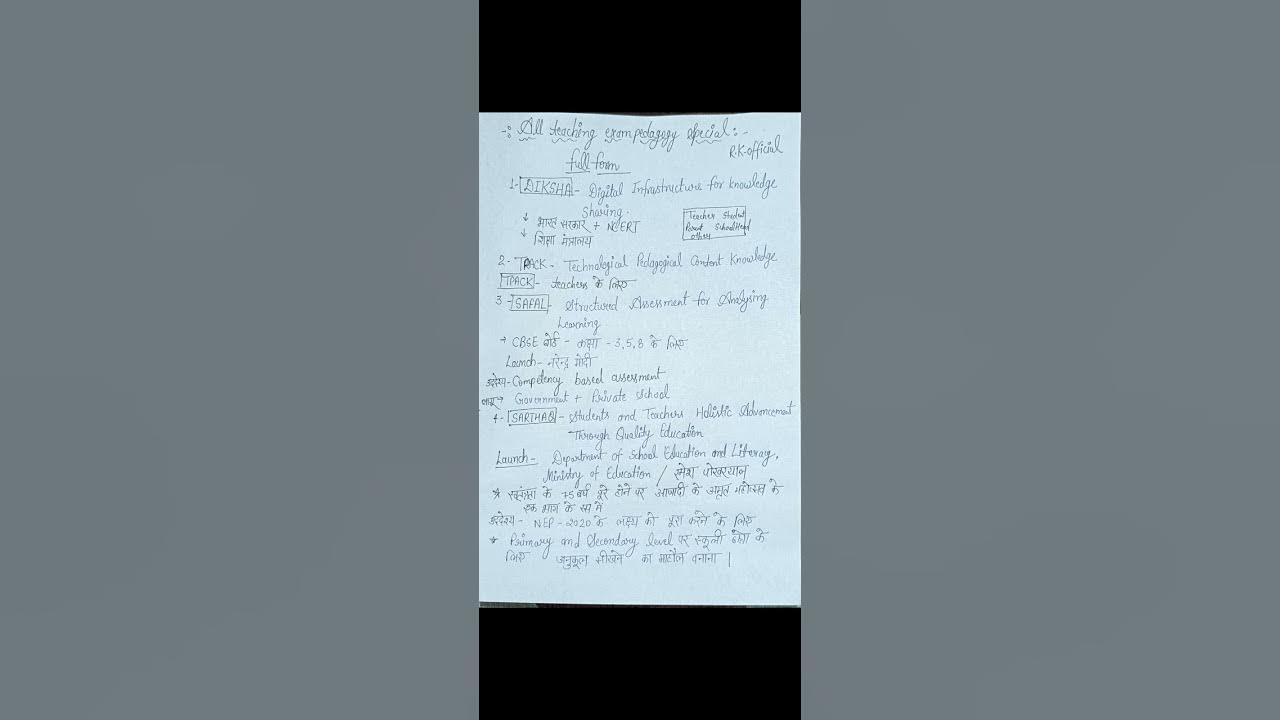 -: All teaching exam pedagogy special :-
R.K-official
full form
1- DIKSHA - Digital Infrastructure for knowledge
Sharing.
↓ भारत सरकार + NCERT
↓ शिक्षा मंत्रालय
Teacher Student
Parent School Head
others
2- TPACK - Technological Pedagogical Content Knowledge
TPACK - teachers के लिए
3 - SAFAL - Structured Assessment for Analysing
Learning
→ CBSE बोर्ड - कक्षा - 3,5,8 के लिए
Launch - नरेन्द्र मोदी
उद्देश्य - Competency based assessment
लागू → Government + Private School
4- SARTHAQ - Students and Teachers Holistic Advancement
Through Quality Education
Launch - Department of School Education and Literacy,
Ministry of Education / रमेश पोखरियाल
* स्वतंत्रता के 75 वर्ष पूरे होने पर आजादी के अमृत महोत्सव के
एक भाग के रूप में
उद्देश्य - NEP - 2020 के लक्ष्य को पूरा करने के लिए
* Primary and Secondary level पर स्कूली शिक्षा के
लिए अनुकूल सीखने का माहौल बनाना |